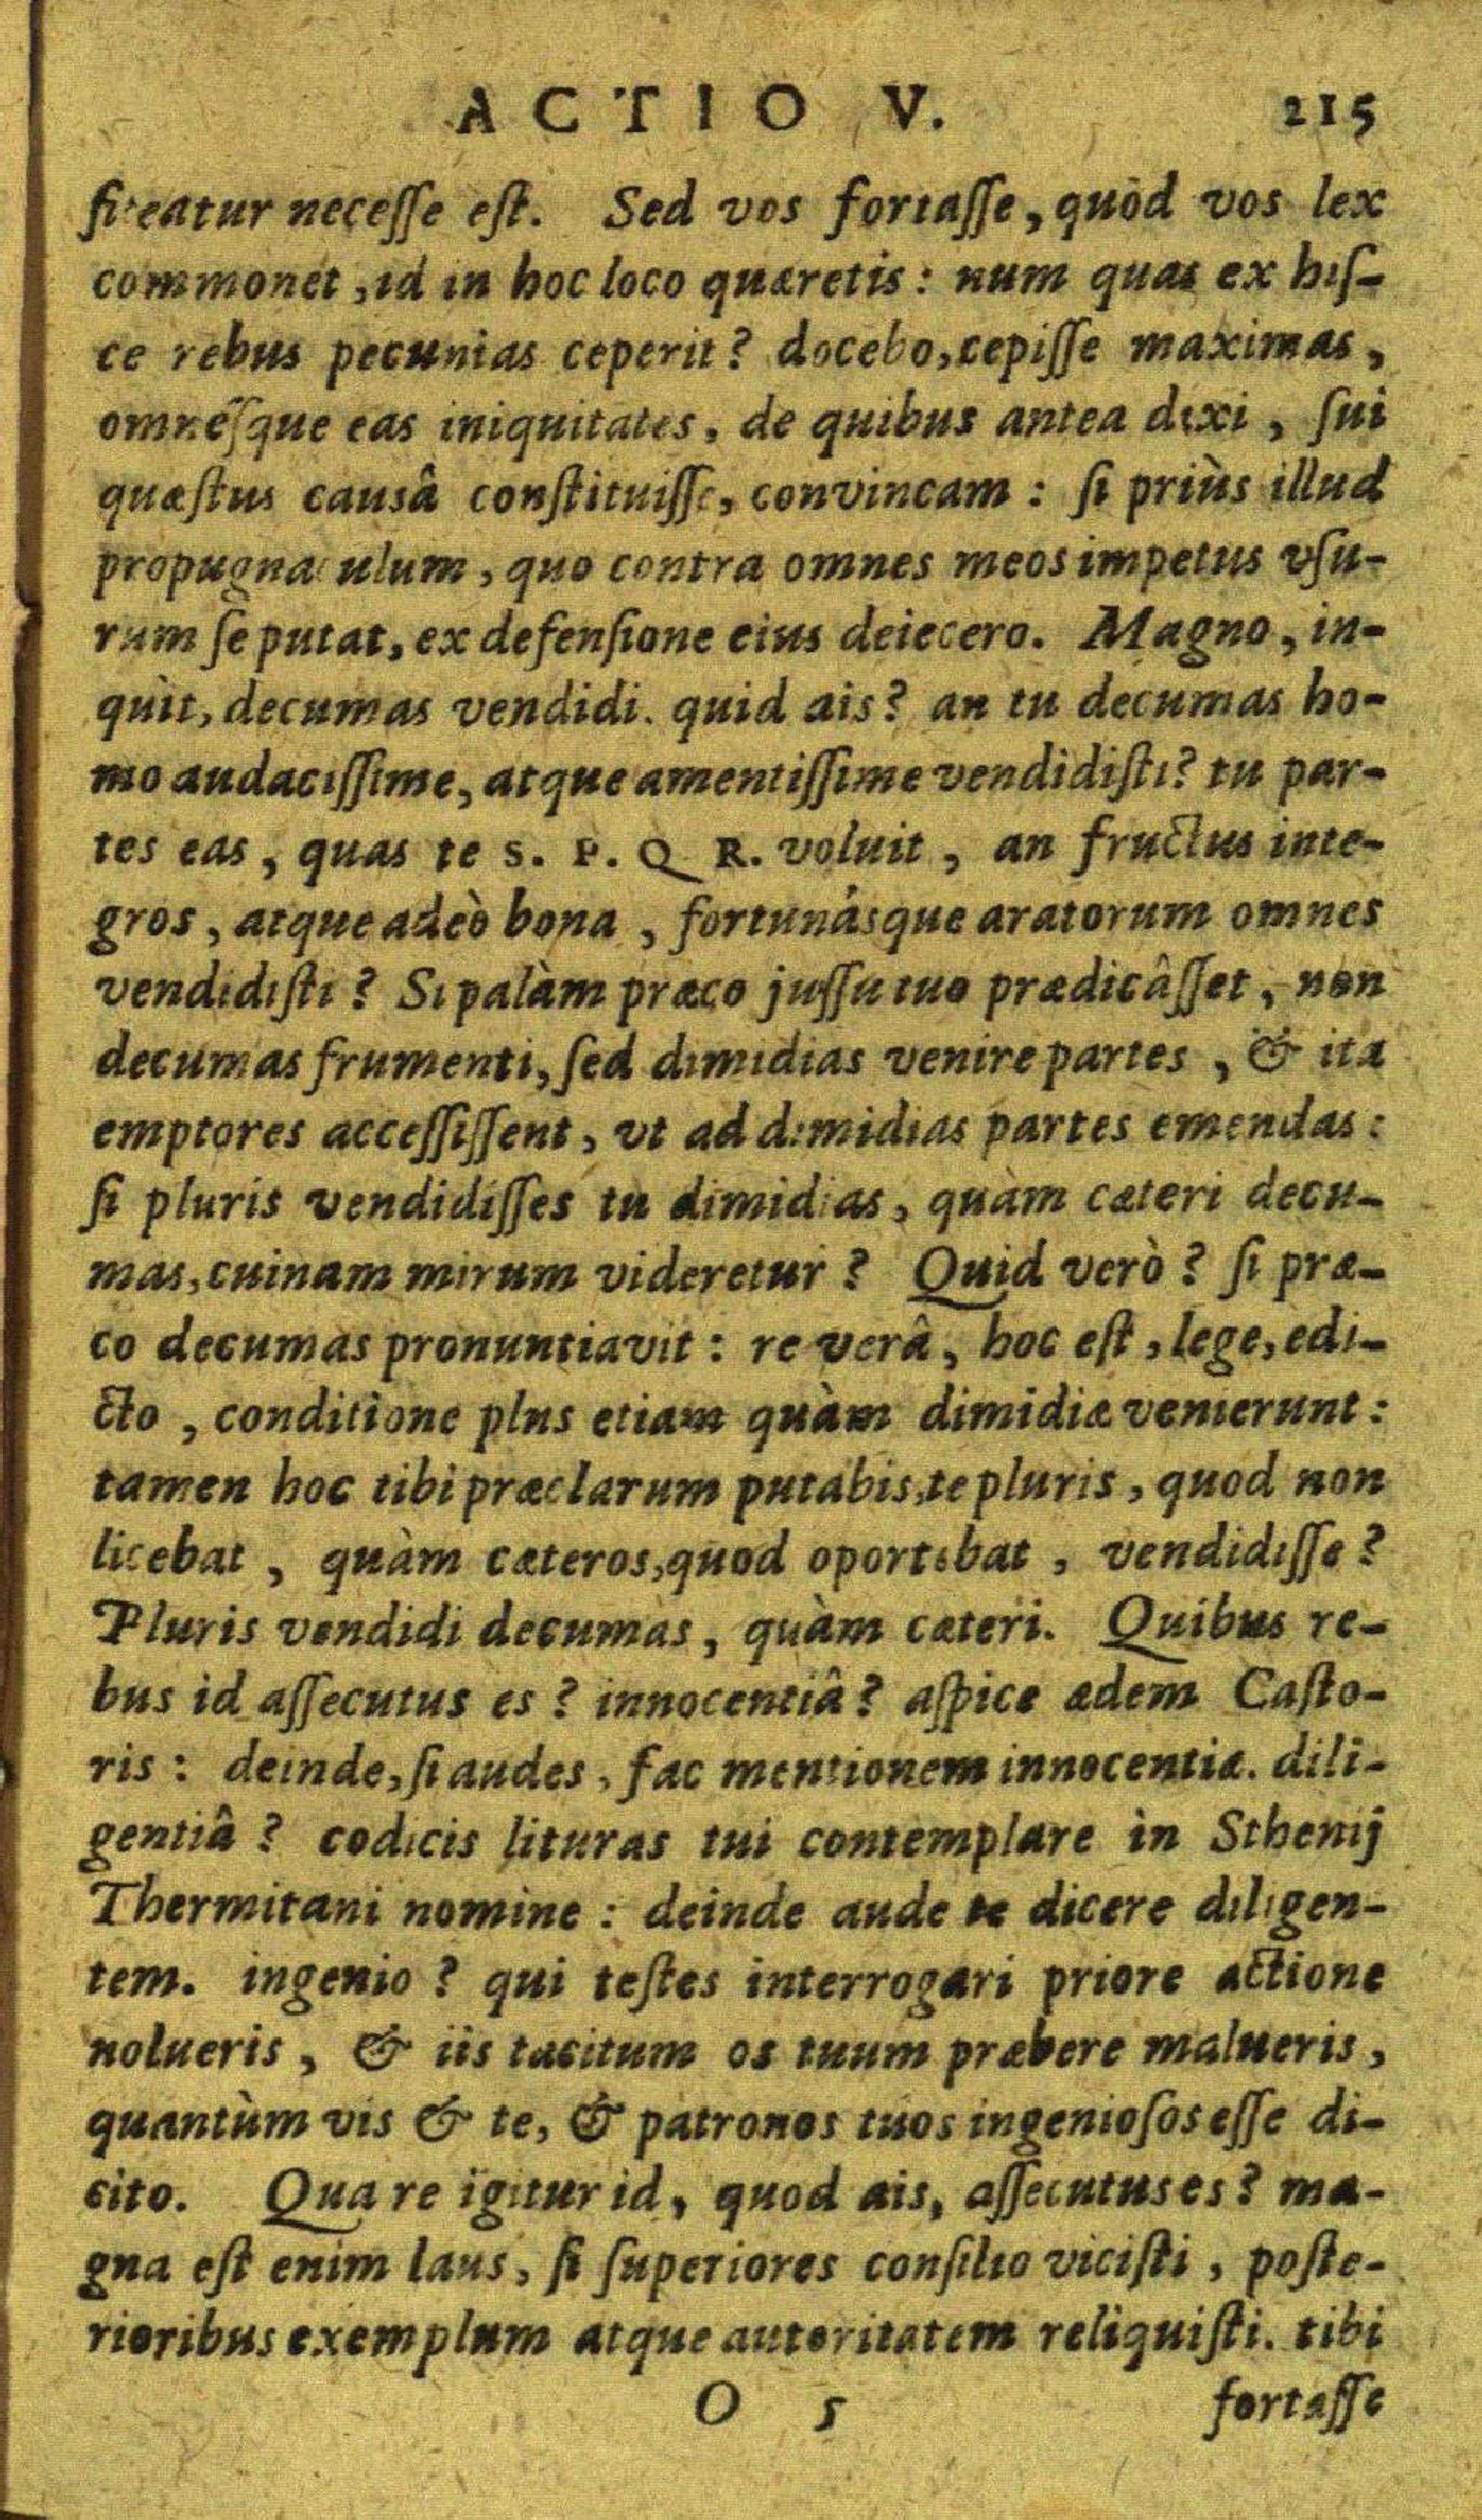 ACTIO V. 215
fiteatur necesse est. Sed vos fortasse, quòd vos lex
commonet, id in hoc loco quæretis: num quas ex his-
ce rebus pecunias ceperit? docebo, cepisse maximas,
omnésque eas iniquitates, de quibus antea dixi, sui
quæstus causâ constituisse, convincam: si priùs illud
propugnaculum, quo contra omnes meos impetus vsu-
rum se putat, ex defensione eius deiecero. Magno, in-
quit, decumas vendidi. quid ais? an tu decumas ho-
mo audacissime, atque amentissime vendidisti? tu par-
tes eas, quas te S. P. Q R. voluit, an fructus inte-
gros, atque adeò bona, fortunásque aratorum omnes
vendidisti? Si palàm præco jussu tuo prædicâsset, non
decumas frumenti, sed dimidias venire partes, & ita
emptores accessissent, vt ad dimidias partes emendas:
si pluris vendidisses tu dimidias, quàm cæteri decu-
mas, cuinam mirum videretur? Quid verò? si præ-
co decumas pronuntiavit: re verâ, hoc est, lege, edi-
cto, conditione plus etiam quàm dimidiæ venierunt:
tamen hoc tibi præclarum putabis, te pluris, quod non
licebat, quàm cæteros, quod oportebat, vendidisse?
Pluris vendidi decumas, quàm cæteri. Quibus re-
bus id assecutus es? innocentiâ? aspice ædem Casto-
ris: deinde, si audes, fac mentionem innocentiæ. dili-
gentiâ? codicis lituras tui contemplare in Sthenij
Thermitani nomine: deinde aude te dicere diligen-
tem. ingenio? qui testes interrogari priore actione
nolueris, & iis tacitum os tuum præbere malueris,
quantùm vis & te, & patronos tuos ingeniosos esse di-
cito. Qua re igitur id, quod ais, assecutus es? ma-
gna est enim laus, si superiores consilio vicisti, poste-
rioribus exemplum atque autoritatem reliquisti. tibi
O 5 fortasse